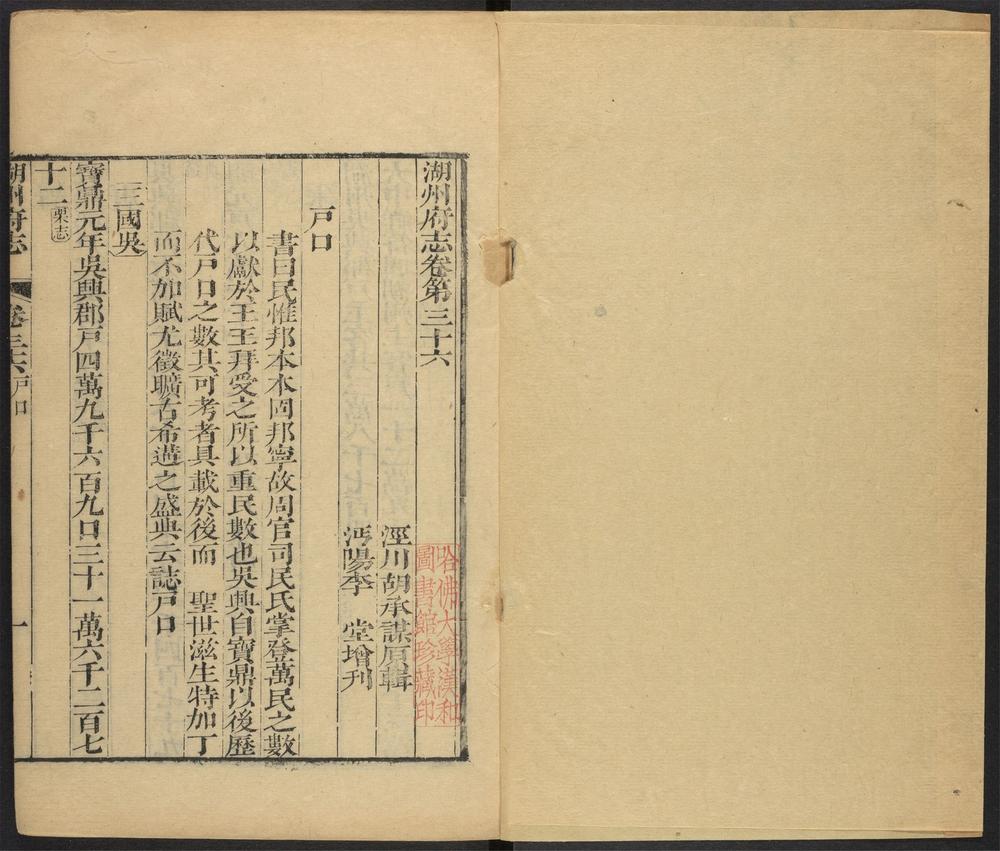 湖州府志卷第三十六
涇川胡承謀原輯
沔陽李 堂增刊
哈佛大學漢和
圖書館珍藏印
戶口
書曰民惟邦本本固邦寧故周官司民氏掌登萬民之數
以獻於王王拜受之所以重民數也吳興自寶鼎以後歷
代戶口之數其可考者具載於後而 聖世滋生特加丁
而不加賦尤徵曠古希遘之盛典云誌戶口
三國吳
寶鼎元年吳興郡戶四萬九千六百九口三十一萬六千二百七
十二栗志
湖州府志 卷三十六 戶口 一